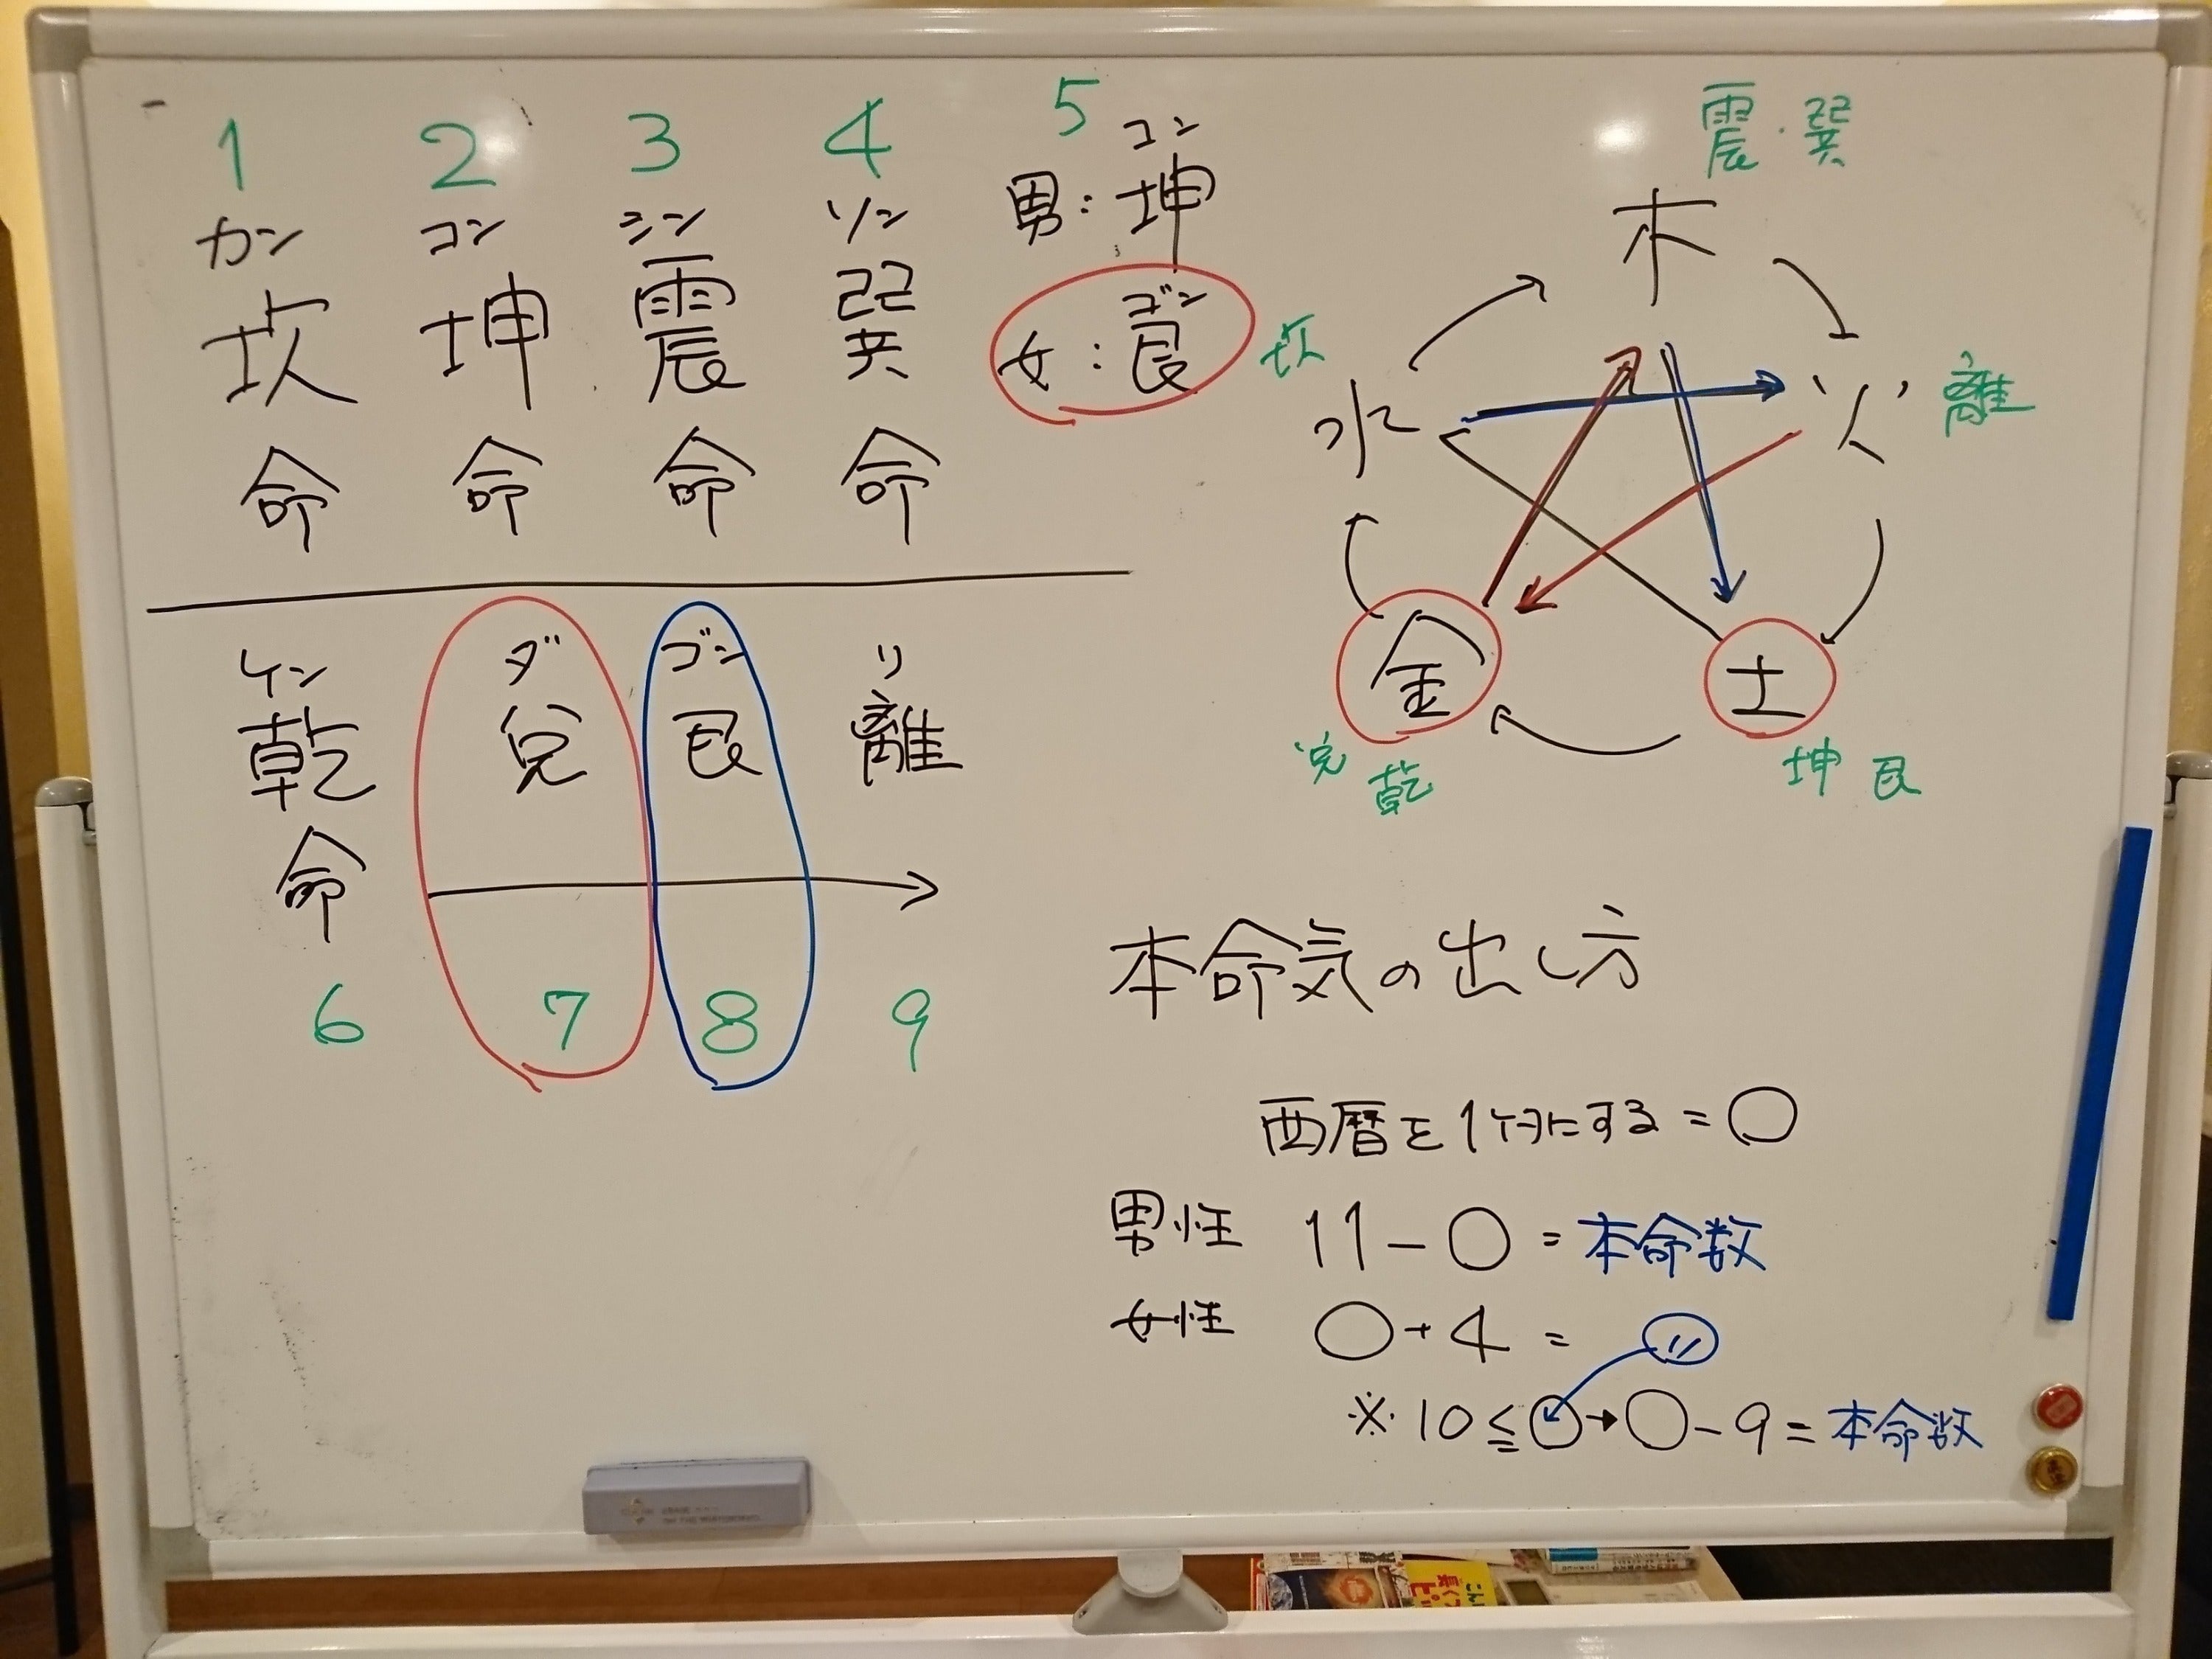 1 2 3 4 5
カン コン シン ソン
坎 坤 震 巽
命 命 命 命
コン
男：坤
ゴン
女：艮
ケン ダ ゴン リ
乾 兌 艮 離
命
6 7 8 9
震・巽
木
坎
水
火 離
金 土
兌 乾
坤 艮
本命気の出し方
西暦を1ケタにする＝○
男性 11－○＝本命数
女性 ○＋4＝〃
※10≦○→○－9＝本命数